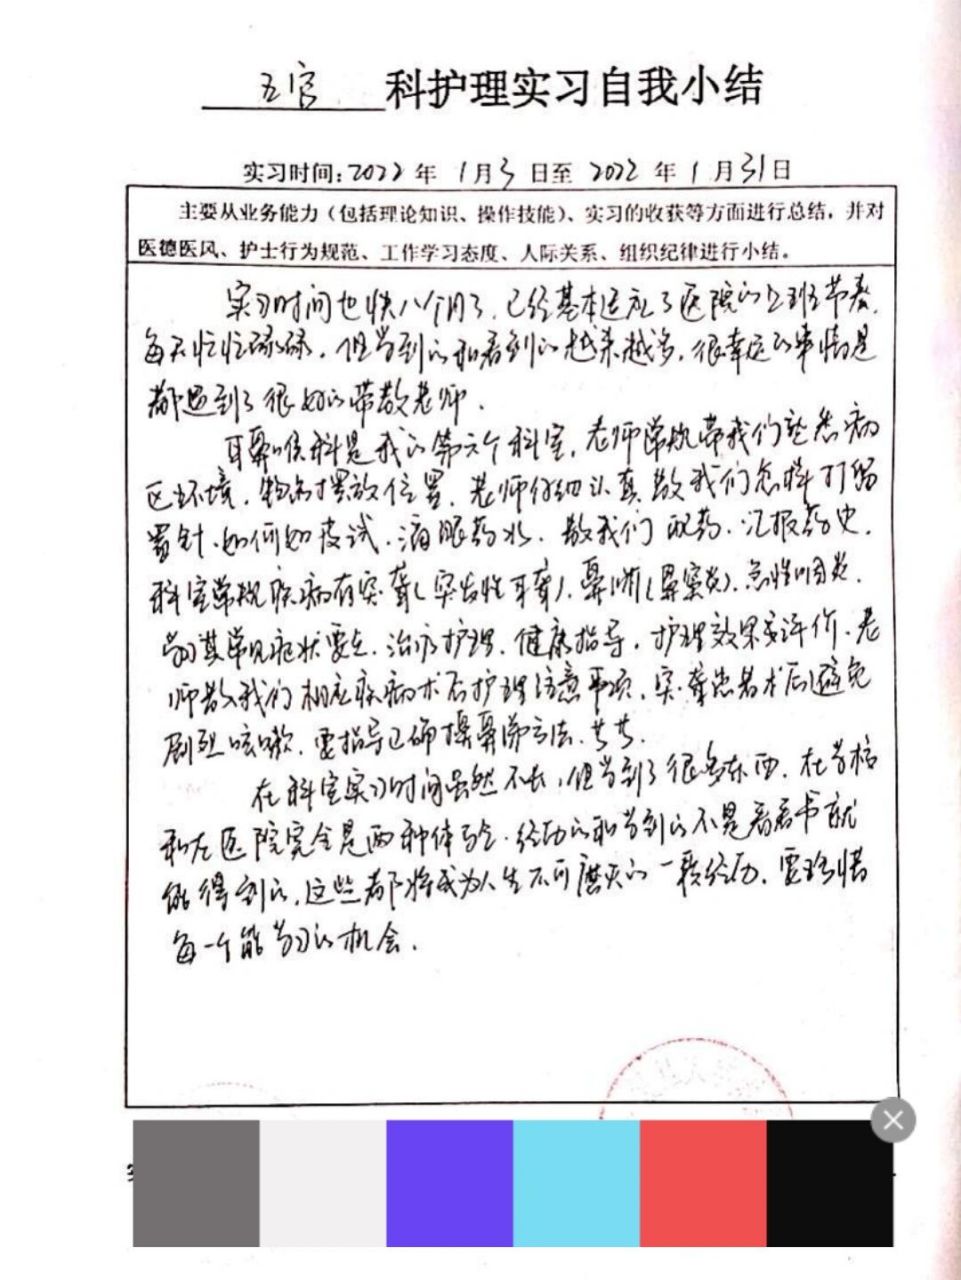 五官科护理实习自我小结
实习时间:2022年1月3日至2022年1月31日
主要从业务能力（包括理论知识、操作技能）、实习的收获等方面进行总结，并对
医德医风、护士行为规范、工作学习态度、人际关系、组织纪律进行小结。
实习时间也快八个月了，已经基本适应了医院的上班节奏，
每天忙忙碌碌，但学到的和看到的越来越多，很幸运的事情是
都遇到了很好的带教老师．
耳鼻喉科是我的第六个科室，老师常规带我们熟悉病
区环境，物品摆放位置，老师仔细认真教我们怎样打留
置针．如何如皮试．滴眼药水．教我们配药．汇报药史．
科室常规疾病有突聋（突发性耳聋）．鼻渊（鼻窦炎）．急性咽炎．
学习其常见症状要点．治疗护理．健康指导．护理效果评价．老
师教我们相应疾病术后护理注意事项．突聋患者术后避免
剧烈咳嗽．要指导正确擤鼻涕方法．等等．
在科室实习时间虽然不长，但学到了很多东西．在学校
和在医院完全是两种体验．经历的和学到的不是看看书就
能得到的．这些都将成为人生不可磨灭的一段经历．要珍惜
每一个能学习的机会．